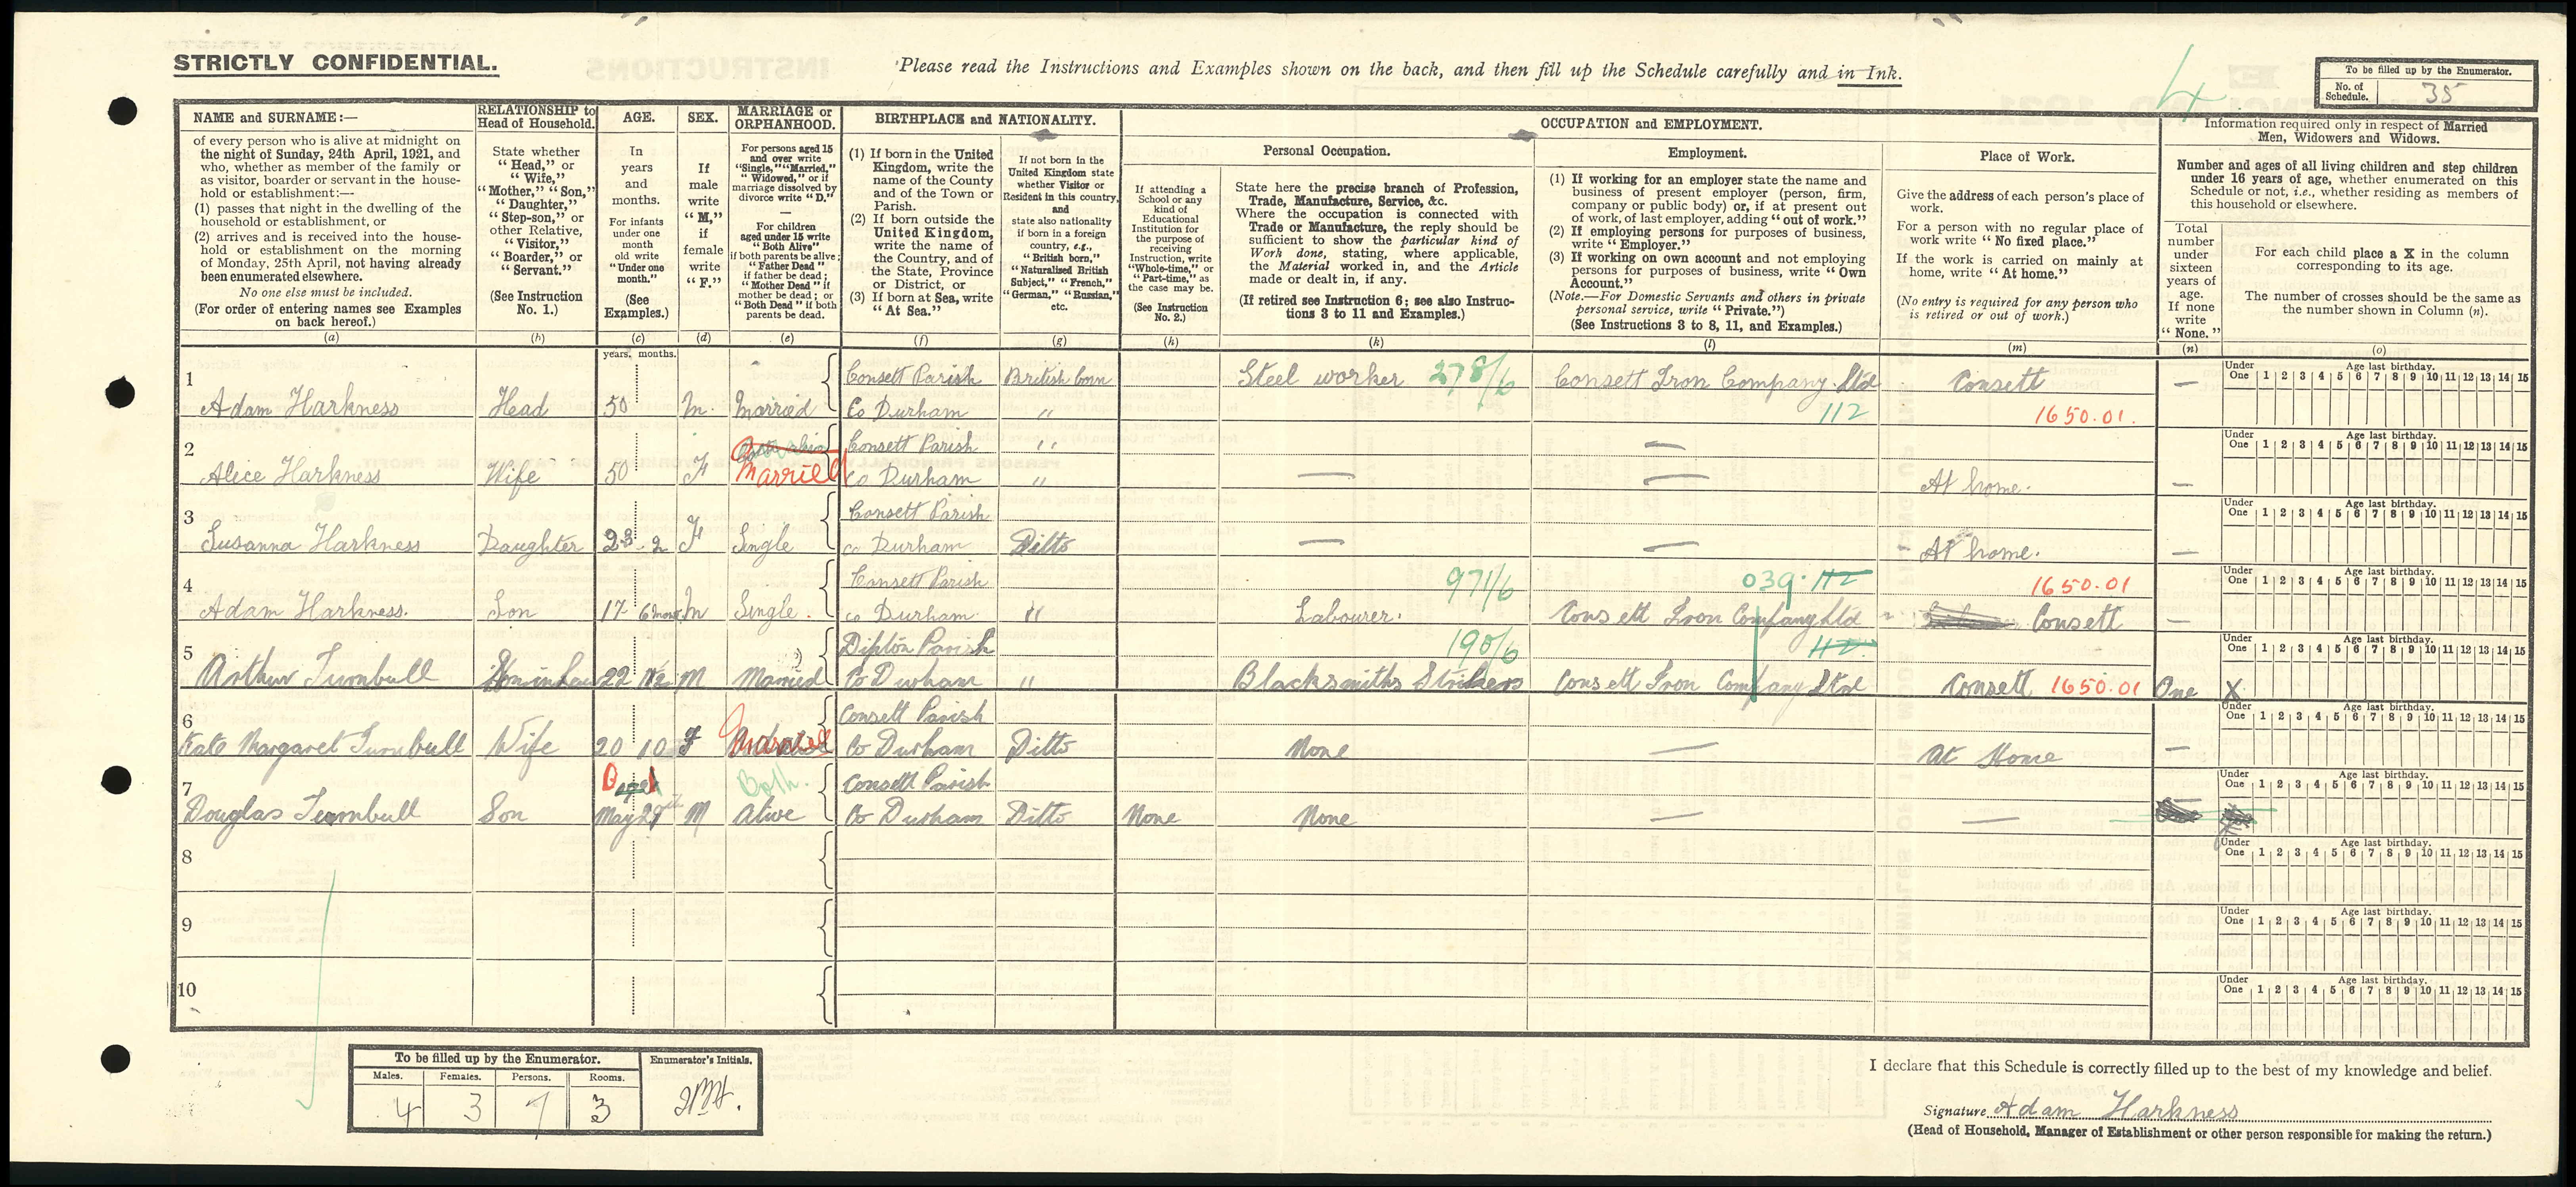 STRICTLY CONFIDENTIAL.
Please read the Instructions and Examples shown on the back, and then fill up the Schedule carefully and in Ink.
4
To be filled up by the Enumerator.
No. of Schedule. 35
NAME and SURNAME:—
of every person who is alive at midnight on
the night of Sunday, 24th April, 1921, and
who, whether as member of the family or
as visitor, boarder or servant in the house-
hold or establishment:—
(1) passes that night in the dwelling of the
household or establishment, or
(2) arrives and is received into the house-
hold or establishment on the morning
of Monday, 25th April, not having already
been enumerated elsewhere.
No one else must be included.
(For order of entering names see Examples
on back hereof.)
(a)
RELATIONSHIP to
Head of Household.
State whether
"Head," or
"Wife,"
"Mother," "Son,"
"Daughter,"
"Step-son," or
other Relative,
"Visitor,"
"Boarder," or
"Servant."
(See Instruction
No. 1.)
(b)
AGE.
In
years
and
months.
For infants
under one
month
old write
"Under one
month."
(See
Examples.)
(c)
years. months.
SEX.
If
male
write
"M,"
if
female
write
"F."
(d)
MARRIAGE or
ORPHANHOOD.
For persons aged 15
and over write
"Single," "Married,"
"Widowed," or if
marriage dissolved by
divorce write "D."
—
For children
aged under 15 write
"Both Alive"
if both parents be alive;
"Father Dead"
if father be dead;
"Mother Dead" if
mother be dead; or
"Both Dead" if both
parents be dead.
(e)
BIRTHPLACE and NATIONALITY.
(1) If born in the United
Kingdom, write the
name of the County
and of the Town or
Parish.
(2) If born outside the
United Kingdom,
write the name of
the Country, and of
the State, Province
or District, or
(3) If born at Sea, write
"At Sea."
(f)
If not born in the
United Kingdom state
whether Visitor or
Resident in this country,
and
state also nationality
if born in a foreign
country, e.g.,
"British born,"
"Naturalised British
Subject," "French,"
"German," "Russian,"
etc.
(g)
OCCUPATION and EMPLOYMENT.
If attending a
School or any
kind of
Educational
Institution for
the purpose of
receiving
Instruction, write
"Whole-time," or
"Part-time," as
the case may be.
(See Instruction
No. 2.)
(h)
Personal Occupation.
State here the precise branch of Profession,
Trade, Manufacture, Service, &c.
Where the occupation is connected with
Trade or Manufacture, the reply should be
sufficient to show the particular kind of
Work done, stating, where applicable,
the Material worked in, and the Article
made or dealt in, if any.
(If retired see Instruction 6; see also Instruc-
tions 3 to 11 and Examples.)
(k)
Employment.
(1) If working for an employer state the name and
business of present employer (person, firm,
company or public body) or, if at present out
of work, of last employer, adding "out of work."
(2) If employing persons for purposes of business,
write "Employer."
(3) If working on own account and not employing
persons for purposes of business, write "Own
Account."
(Note.—For Domestic Servants and others in private
personal service, write "Private.")
(See Instructions 3 to 8, 11, and Examples.)
(l)
Place of Work.
Give the address of each person's place of
work.
For a person with no regular place of
work write "No fixed place."
If the work is carried on mainly at
home, write "At home."
(No entry is required for any person who
is retired or out of work.)
(m)
Information required only in respect of Married
Men, Widowers and Widows.
Number and ages of all living children and step children
under 16 years of age, whether enumerated on this
Schedule or not, i.e., whether residing as members of
this household or elsewhere.
Total
number
under
sixteen
years of
age.
If none
write
"None."
(n)
For each child place a X in the column
corresponding to its age.
The number of crosses should be the same as
the number shown in Column (n).
(o)
1 Consett Parish British born Steel worker 278/6 Consett Iron Company Ltd Consett —
Adam Harkness Head 50 M. Married Co Durham " 112 1650.01.
Under One Age last birthday. 1 2 3 4 5 6 7 8 9 10 11 12 13 14 15
2 Consett Parish " —
Alice Harkness Wife 50 F Married Co Durham " — — At home. —
Under One Age last birthday. 1 2 3 4 5 6 7 8 9 10 11 12 13 14 15
3 Consett Parish
Susanna Harkness Daughter 23 2 F Single co Durham Ditto — — At home. —
Under One Age last birthday. 1 2 3 4 5 6 7 8 9 10 11 12 13 14 15
4 Consett Parish 971/6 039. 112 1650.01
Adam Harkness. Son 17 6 M Single. co Durham " Labourer. Consett Iron Company Ltd Consett —
Under One Age last birthday. 1 2 3 4 5 6 7 8 9 10 11 12 13 14 15
5 Dipton Parish 190/6 112
Arthur Turnbull 22 M Married Co Durham " Blacksmiths Strikers Consett Iron Company Ltd Consett 1650.01 One X
Under One Age last birthday. 1 2 3 4 5 6 7 8 9 10 11 12 13 14 15
6 Consett Parish
Kate Margaret Turnbull Wife 20 10 F Married Co Durham Ditto None — At Home —
Under One Age last birthday. 1 2 3 4 5 6 7 8 9 10 11 12 13 14 15
7 Both. Consett Parish
Douglas Turnbull Son May M Alive Co Durham Ditto None None — —
Under One Age last birthday. 1 2 3 4 5 6 7 8 9 10 11 12 13 14 15
8
Under One Age last birthday. 1 2 3 4 5 6 7 8 9 10 11 12 13 14 15
9
Under One Age last birthday. 1 2 3 4 5 6 7 8 9 10 11 12 13 14 15
10
Under One Age last birthday. 1 2 3 4 5 6 7 8 9 10 11 12 13 14 15
To be filled up by the Enumerator. Enumerator's Initials.
Males. Females. Persons. Rooms.
4 3 7 3
I declare that this Schedule is correctly filled up to the best of my knowledge and belief.
Signature Adam Harkness
(Head of Household, Manager of Establishment or other person responsible for making the return.)